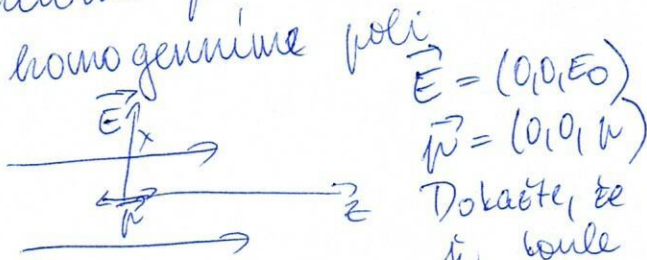 homogenníme poli
E⃗ = (0,0,E0)
p⃗ = (0,0,p)
E⃗
x
p⃗
z⃗
Dokažte, že
koule